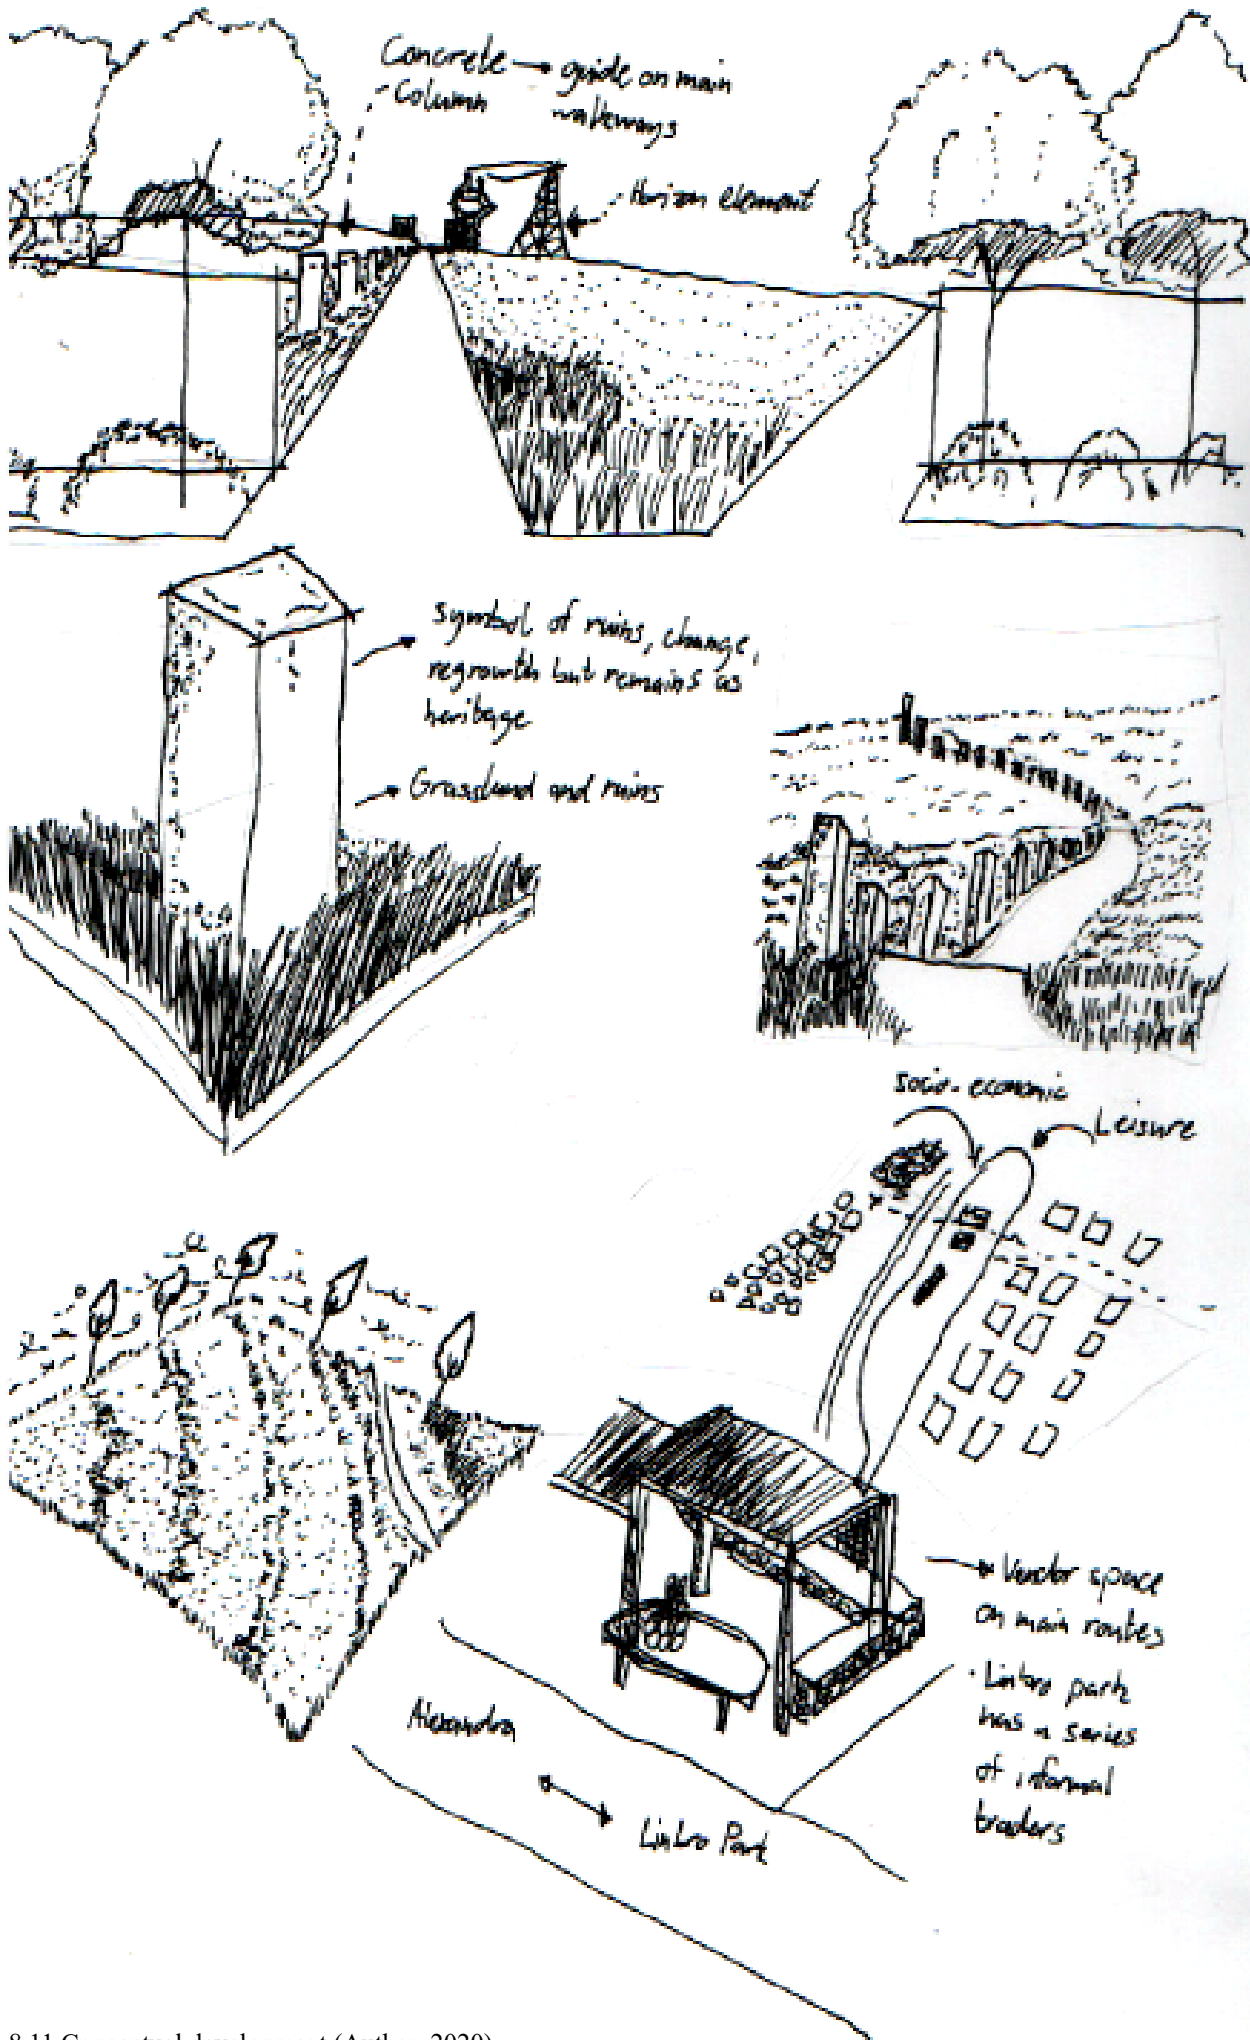 Concrete → guide on main
Column walkways
Horizon element
Symbol of ruins, change,
regrowth but remains as
heritage
Grassland and ruins
socio-economic
Leisure
Vendor space
on main routes
• Linbro park
has a series
of informal
traders
Alexandra
Linbro Park
8.11 Conceptual development (Author, 2020)